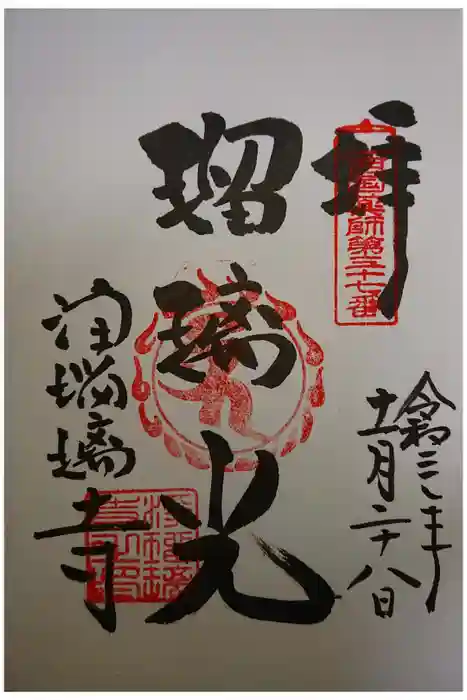 拝
西国薬師第三十七番
瑠璃光
浄瑠璃寺
令和三年
十一月二十八日